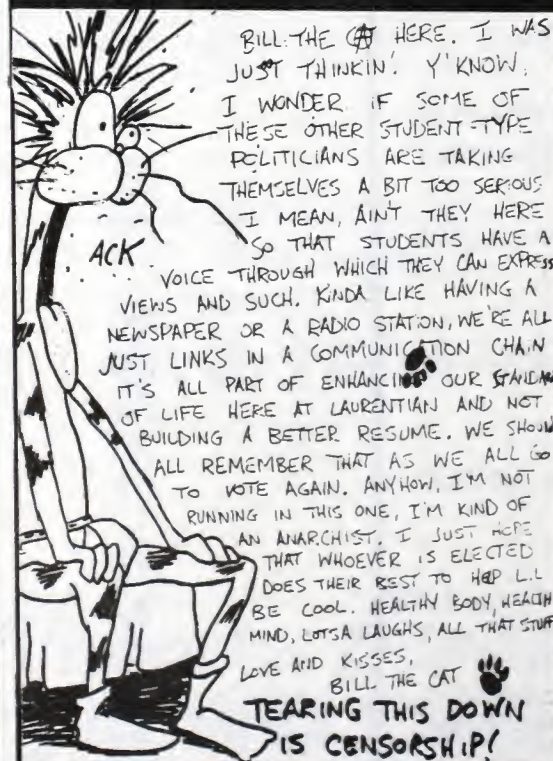 BILL THE CAT HERE. I WAS
JUST THINKIN'. Y'KNOW,
I WONDER IF SOME OF
THESE OTHER STUDENT-TYPE
POLITICIANS ARE TAKING
THEMSELVES A BIT TOO SERIOUS
I MEAN, AIN'T THEY HERE
ACK
SO THAT STUDENTS HAVE A
VOICE THROUGH WHICH THEY CAN EXPRESS
VIEWS AND SUCH. KINDA LIKE HAVING A
NEWSPAPER OR A RADIO STATION, WE'RE ALL
JUST LINKS IN A COMMUNICATION CHAIN
IT'S ALL PART OF ENHANCING OUR STANDARD
OF LIFE HERE AT LAURENTIAN AND NOT
BUILDING A BETTER RESUME. WE SHOULD
ALL REMEMBER THAT AS WE ALL GO
TO VOTE AGAIN. ANYHOW, I'M NOT
RUNNING IN THIS ONE, I'M KIND OF
AN ANARCHIST. I JUST HOPE
THAT WHOEVER IS ELECTED
DOES THEIR BEST TO HELP L.U.
BE COOL. HEALTHY BODY, HEALTHY
MIND, LOTSA LAUGHS, ALL THAT STUFF
LOVE AND KISSES,
BILL THE CAT
TEARING THIS DOWN
IS CENSORSHIP!